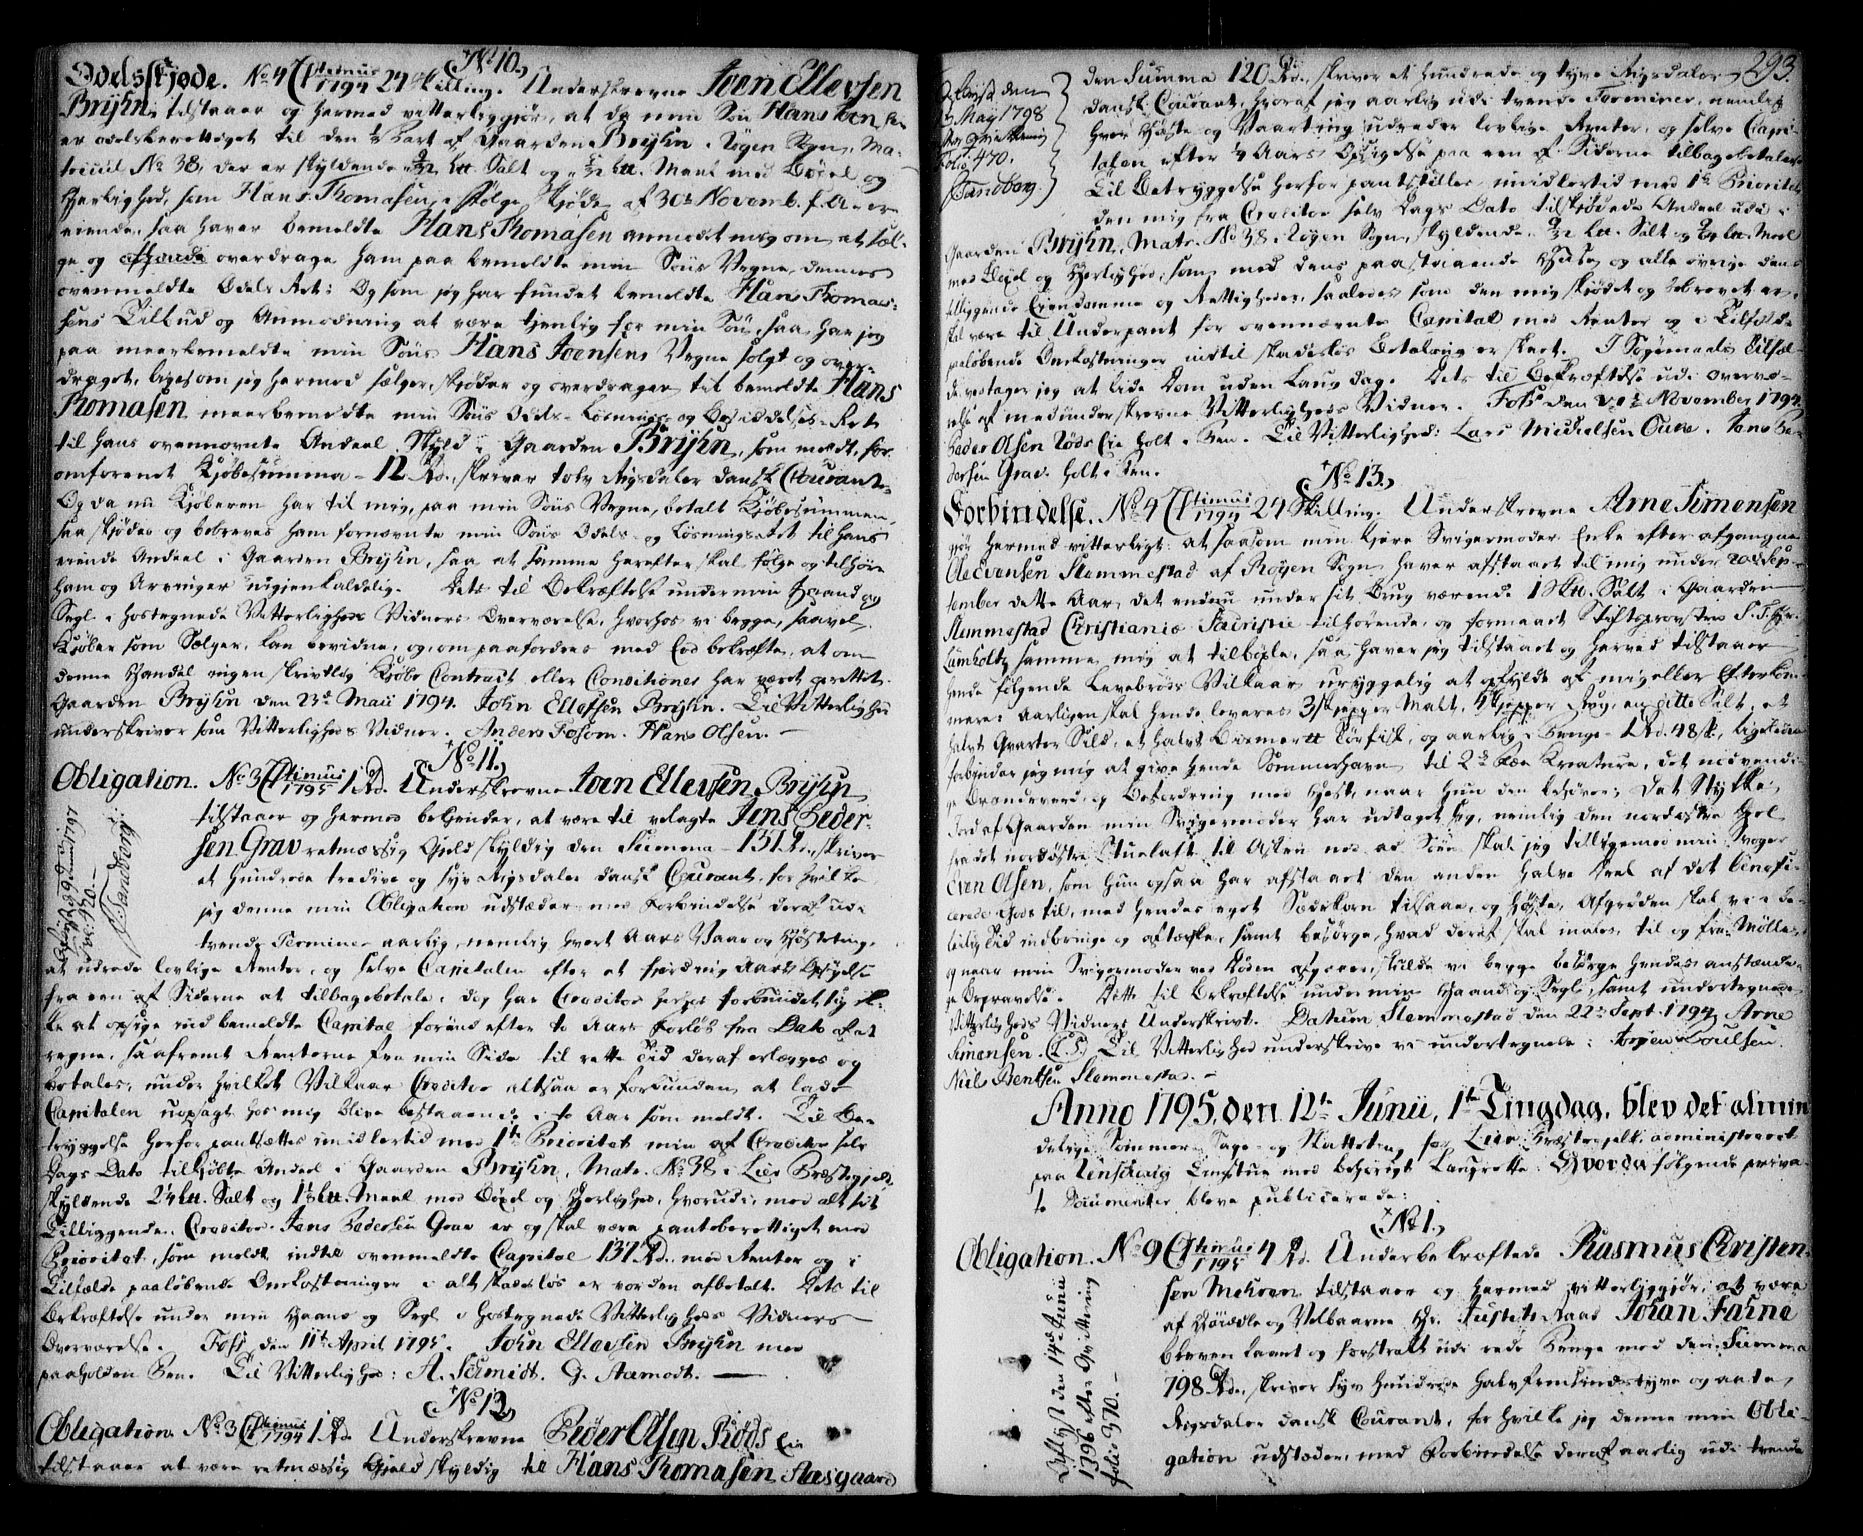 (No 10.)
Odelsskjøde. No 4 C: Primus 1794 24 Skilling. Underskrevne Joen Ellevsen
Bryhn, tilstaaer og hermed vitterliggjør, at da min Søn Hans Joensen
er odelsberettiget til den Part af Gaarden Bryhn i Røgen Sogn, Ma-
tricul No 38, der er skyldende Salt og Meel med Bøxel og
Herlighed, som Hans Thomasen, i følge Skjøde af 30te Novemb. f. A. er
eiende, saa haver bemeldte Hans Thomasen anmodet mig om at sæl-
ge og overdrage ham paa bemeldte min Søns Vegne, dennes
ovenmeldte Odels Ret: Og som jeg har fundet bemeldte Hans Thoma-
sens Tilbud og Anmodning at være tjenlig for min Søn, saa har jeg
paa meerbemeldte min Søns Hans Joensens Vegne solgt og over-
draget, ligesom jeg hermed sælger, skjøder og overdrager til bemeldte Hans
Thomasen meerbemeldte min Søns Odels- Løsnings og Besiddelses-Ret
til hans ovennævnte Andeel Skyld i Gaarden Bryhn, som meldt, for
omforenet Kjøbesumma - 12 Rd., skriver tolv Rigsdaler dansk Courant.
Og da nu Kjøberen har til mig, paa min Søns Vegne, betalt Kjøbesummen,
saa skjødes og bebreves ham fornævnte min Søns Odels- og Løsningsret til hans
eiende Andeel i Gaarden Bryhn, saa at samme herefter skal følge og tilhøre
ham og Arvinger uigjenkaldelig. Dets til Bekræftelse under min Haand og
Segl i hostegnede Vitterligheds Vidners Overværelse, hvorhos vi begge, saavel
Kjøber som Sælger, kan bevidne, og, om paafordres med Eed bekræfte, at om
denne Handel ingen skrivtlig Kjøbe Contract eller Conditioner har været oprettet.
Gaarden Bryhn den 23de Maii 1794. John Ellefsen Bryhn. Til Vitterlighed
underskriver som Vitterligheds Vidner. Anders Fosom. Hans Olsen. -
(No 11.)
Obligation. No 3 C: Primus 1795 1 Rd. Underskrevne Joen Ellevsen Bryhn
tilstaaer og hermed bekjender, at være til velagte Jens Peder-
sen Grav retmæssig Gjeld skyldig den Summa - 137 Rd., skriver
et hundrede tredive og syv Rigsdaler dansk Courant, for hvilke
jeg denne min Obligation udstæder med Forbindelse deraf udi
tvende Terminer aarlig, nemlig hvert Aars Vaar og Høsteting,
at udrede lovlige Renter, og selve Capitalen efter et fjerding Aars Opsigelse
fra een af Siderne at tilbagebetale; dog har Creditor herhos forbundet sig ik-
ke at opsige bemeldte Capital forend efter to Aars Forløb fra Dato at
regne, saafremt Renterne fra min Side til rette Tid deraf erlægges og
betales; under hvilket Vilkaar Creditor altsaa er forbunden at lade
Capitalen uopsagt hos mig blive bestaaende i to Aar som meldt. Til Be-
tryggelse herfor pantsættes imidlertid med 1te Prioritet min af Creditor selv
Dags Dato tilkjøbte Andeel i Gaarden Bryhn, Matr. No 38 i Lier Præstegjeld,
skyldende Salt og Meel med Bøxel og Herlighed, hvorudi, med alt sit
Tilliggende, Creditor Jens Pedersen Grav er og skal være panteberettiget med
Prioritet, som meldt indtil ovenmeldte Capital 137 Rd. med Renter og i
Tilfælde paaløbende Omkostninger i alt skadesløs er vorden afbetalt. Dets til
Bekræftelse under min Haand og Segl i hostegnede Vitterligheds Vidners
Overværelse. Foss den 11te April 1795. John Ellevsen Bryhn med
paaholden Pen. Til Vitterlighed: A. Schmidt. G. Aamodt.
(No 12.)
Obligation No 3 C: Primus 1794 1 Rd. Underskrevne Peder Olsen Røds Eie
tilstaaer at være retmæssig Gjeld skyldig til Hans Thomasen Aasgaard
293.
Aflæst den
Maÿ 1798
Folio 470.
Tandberg.
den Summa 120 Rd., skriver et hundrede og tyve Rigsdaler
dansk Courant, hvoraf jeg aarlig udi tvende Terminer, nemlig
hver Høste og Vaarting udreder lovlige Renter, og selve Capi-
talen efter 1/4 Aars Opsigelse paa een af Siderne tilbagebetaler.
Til Betryggelse herfor pantstilles imidlertid med 1te Prioritet
den mig fra Creditor selv Dags Dato tilskjødede Andeel udi
Gaarden Bryhn, Matr. No 38, Røgen Sogn, skyldende Salt og Meel
med Bøxel og Herlighed, som med dens paastaaende Huse og alle øvrige dens
tilliggende Eiendomme og Rettigheder, saaledes som den mig skjødet og bebrevet er,
skal være til Underpant for ovennævnte Capital med Renter og i Tilfælde
paaløbende Omkostninger indtil skadesløs Betaling er skeet. I Søgemaals Tilfæl-
de vedtager jeg at lide Dom uden Laugdag. Dets til Bekræftelse udi overvæ-
relse af medunderskrevne Vitterligheds Vidner. Foss den November 1794
Peder Olsen Røds Eie holt i Pen. Til Vitterlighed: Lars Michelsen Oune. Jens Pe-
dersen Grav holt i Pen.
(No 13.)
Forbindelse. No 4 C: Primus 1794 24 Skilling. Underskrevne Arne Simensen
gjør hermed vitterligt: at saasom min kjære Svigermoder Enke efter afgangne
Ole Evensen Slemmestad af Røyen Sogn haver afstaaet til mig under 20de Sep-
tember dette Aar, det endnu under sit Brug værende Salt i Gaarden
Slemmestad Christianiæ Sacristie tilhørende, og formaaet Stiftsprovsten S. T. Hr.
Lumholtz samme mig at tilbøxle, saa haver jeg tilstaaet og herved tilstaaer
hende følgende Levebrøds Vilkaar uryggelig at opfylde af mig eller Efterkom-
mere: Aarligen skal hende leveres 3 Skjepper Malt, Skjepper Rug, en ditto Salt, et
halvt Qvarter Sild, et halvt Bismer Tørfisk, og aarlig i Penge - Rd. 48 sk., ligeledes
forbinder jeg mig at give hende Sommerhavn til 2de Fæe Kreature, det nødvendi-
ge Brændeved og Befordring med Hest, naar hun den behøver; Det Stykke
Jord af Gaarden min Svigermoder har udtaget sig, nemlig den nordøstre Del
fra det nordøstre Stuelaft til Osten ned ad Søen skal jeg tilligemed min Svoger
Even Olsen, som hun ogsaa har afstaaet den anden halve Deel af det benefi-
cerede Gods til, med hendes eget Sædekorn tilsaae, og høste, Afgrøden skal vi i be-
leilig Tid indbringe og aftærske, samt besørge, hvad deraf skal males, til og fra Møllen,
og naar min Svigermoder ved Døden afgaaer, skulde vi begge besørge hendes anstændi-
ge Begravelse. Dette til Bekræftelse under min Haand og Segl, samt undertegnede
Vitterligheds Vidners Underskrivt. Datum Slemmestad den 22de Sept. 1794. Arne
Simensen. (L. S.) Til Vitterlighed underskrive vi undertegnede: Jørgen Poulsen.
Niels Bentsen Slemmestad. -
Anno 1795, den 12te Junii, 1te Tingdag, blev det almin
delige Sommer- Sage- og Skatteting for Lier Præstegjeld administreret
paa Linschouig Tingstue med behørigt Laugrette: Hvorda følgende priva-
te Documenter bleve publicerede:
(No 1.)
Obligation. No 9 C: Primus 1795 4 Rd. Underbekræftede Rasmus Christen-
sen Mehren tilstaaer og hermed vitterliggjør, at være
af Høiædle og Velbaarne Hr. Justits Raad Johan Farne
bleven laant og forstrakt udi rede Penge med den Summa
798 Rd., skriver syv Hundrede halvfemsindstyve og aatte
Rigsdaler dansk Courant, for hvilke jeg denne min Obli-
gation udsteder, med Forbindelse deraf aarlig udi tvende